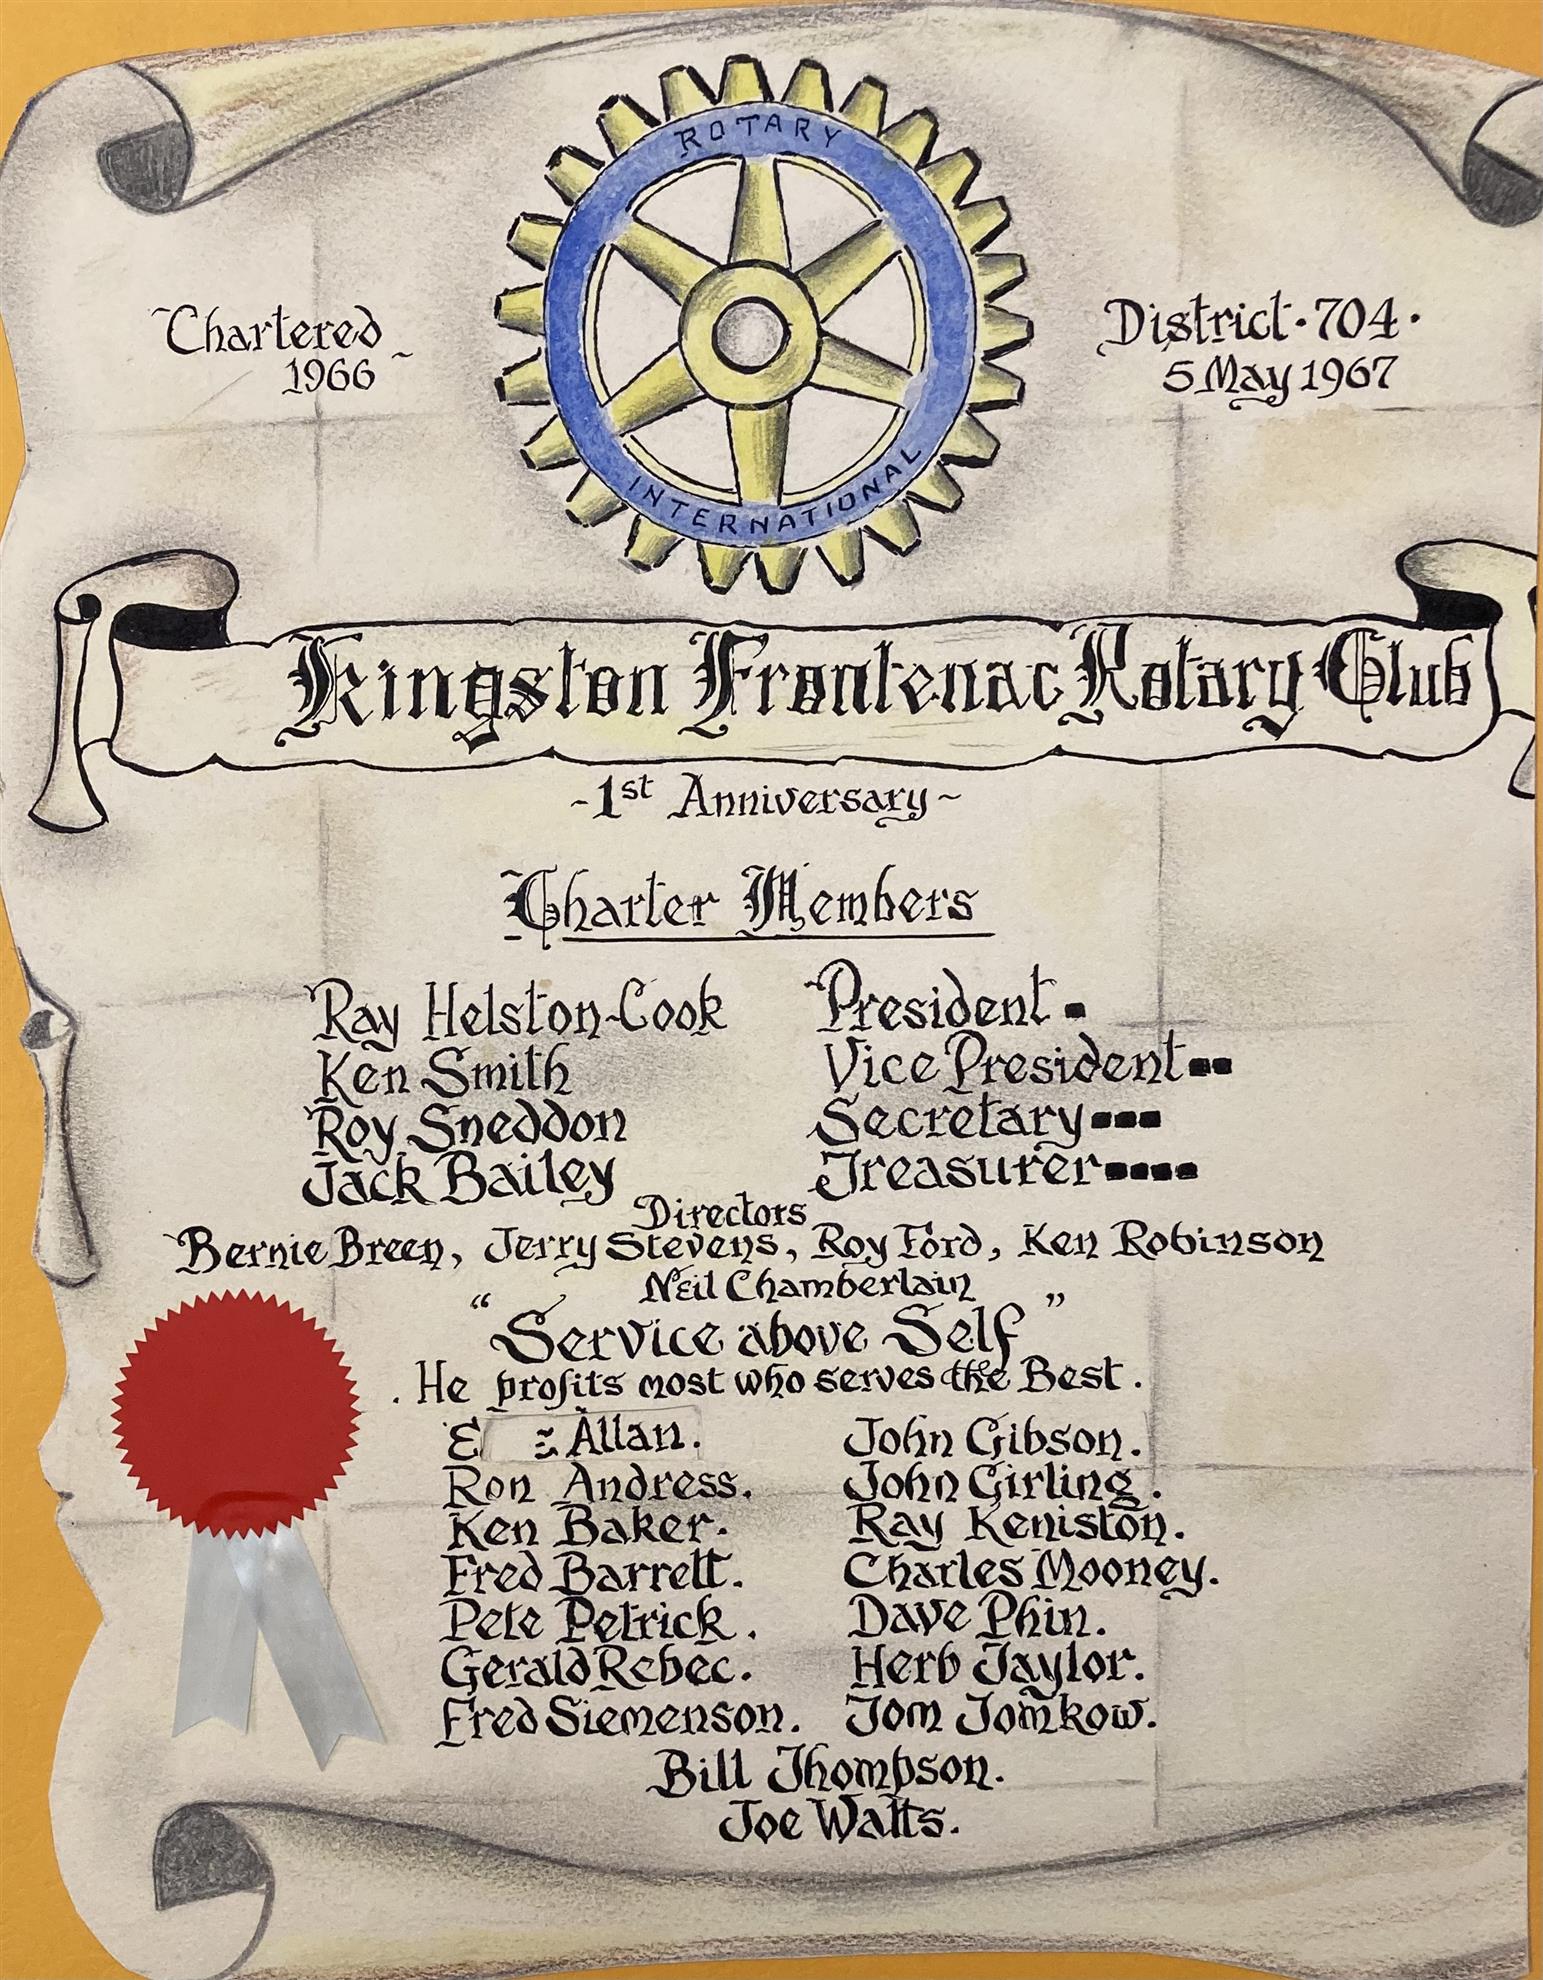 ROTARY
INTERNATIONAL
Chartered
1966
District · 704 ·
5 May 1967
Kingston Frontenac Rotary Club
~ 1st Anniversary ~
Charter Members
Ray Helston-Cook President
Ken Smith Vice President
Roy Sneddon Secretary
Jack Bailey Treasurer
Directors
Bernie Breen, Jerry Stevens, Roy Ford, Ken Robinson
Neil Chamberlain
"Service above Self"
. He profits most who serves the Best .
Allan. John Gibson.
Ron Andress. John Girling.
Ken Baker. Ray Keniston.
Fred Barrett. Charles Mooney.
Pete Petrick. Dave Phin.
Gerald Rebec. Herb Taylor.
Fred Siemenson. Tom Tomkow.
Bill Thompson.
Joe Watts.